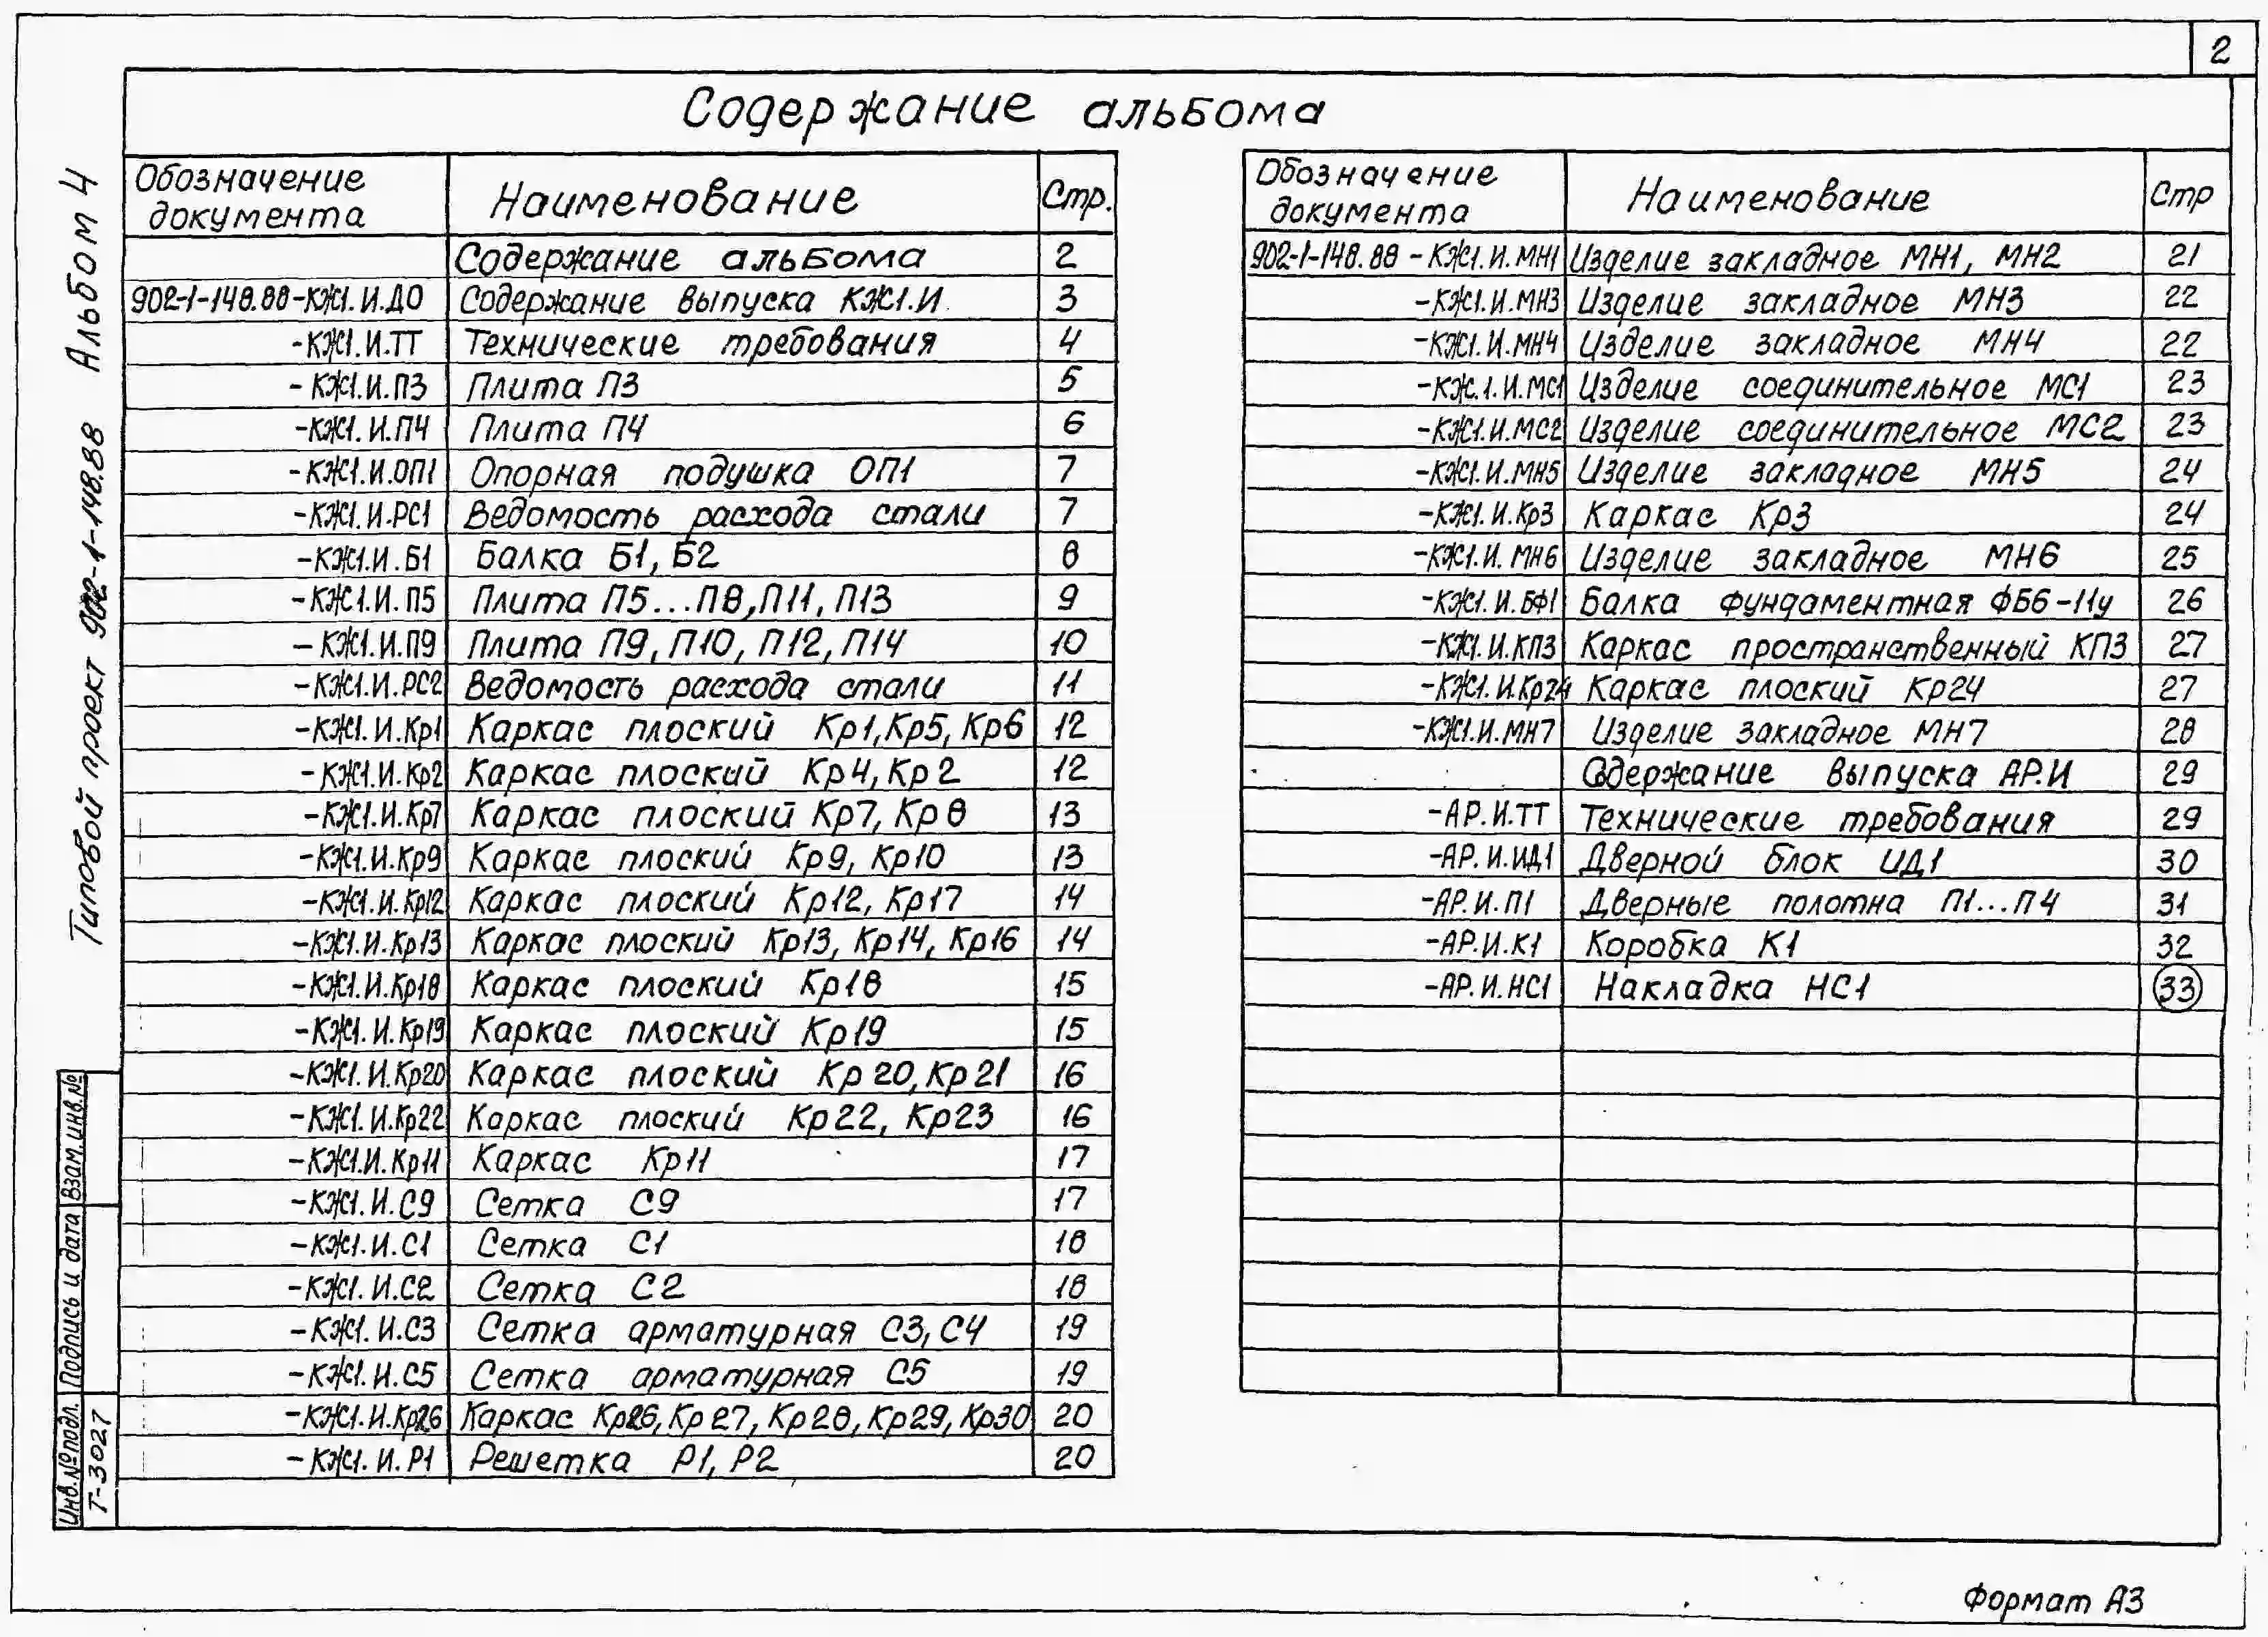 2
Содержание альбома
Обозначение документа Наименование Стр.
Содержание альбома 2
902-1-148.88-КЖ1.И.Д0 Содержание выпуска КЖ1.И. 3
-КЖ1.И.ТТ Технические требования 4
-КЖ1.И.П3 Плита П3 5
-КЖ1.И.П4 Плита П4 6
-КЖ1.И.ОП1 Опорная подушка ОП1 7
-КЖ1.И.РС1 Ведомость расхода стали 7
-КЖ1.И.Б1 Балка Б1, Б2 8
-КЖ1.И.П5 Плита П5...П8, П11, П13 9
-КЖ1.И.П9 Плита П9, П10, П12, П14 10
-КЖ1.И.РС2 Ведомость расхода стали 11
-КЖ1.И.Кр1 Каркас плоский Кр1, Кр5, Кр6 12
-КЖ1.И.Кр2 Каркас плоский Кр4, Кр2 12
-КЖ1.И.Кр7 Каркас плоский Кр7, Кр8 13
-КЖ1.И.Кр9 Каркас плоский Кр9, Кр10 13
-КЖ1.И.Кр12 Каркас плоский Кр12, Кр17 14
-КЖ1.И.Кр13 Каркас плоский Кр13, Кр14, Кр16 14
-КЖ1.И.Кр18 Каркас плоский Кр18 15
-КЖ1.И.Кр19 Каркас плоский Кр19 15
-КЖ1.И.Кр20 Каркас плоский Кр20, Кр21 16
-КЖ1.И.Кр22 Каркас плоский Кр22, Кр23 16
-КЖ1.И.Кр11 Каркас Кр11 17
-КЖ1.И.С9 Сетка С9 17
-КЖ1.И.С1 Сетка С1 18
-КЖ1.И.С2 Сетка С2 18
-КЖ1.И.С3 Сетка арматурная С3, С4 19
-КЖ1.И.С5 Сетка арматурная С5 19
-КЖ1.И.Кр26 Каркас Кр26, Кр27, Кр28, Кр29, Кр30 20
-КЖ1.И.Р1 Решетка Р1, Р2 20
Обозначение документа Наименование Стр
902-1-148.88-КЖ1.И.МН1 Изделие закладное МН1, МН2 21
-КЖ1.И.МН3 Изделие закладное МН3 22
-КЖ1.И.МН4 Изделие закладное МН4 22
-КЖ.1.И.МС1 Изделие соединительное МС1 23
-КЖ1.И.МС2 Изделие соединительное МС2 23
-КЖ1.И.МН5 Изделие закладное МН5 24
-КЖ1.И.Кр3 Каркас Кр3 24
-КЖ1.И.МН6 Изделие закладное МН6 25
-КЖ1.И.БФ1 Балка фундаментная ФБ6-11у 26
-КЖ1.И.КП3 Каркас пространственный КП3 27
-КЖ1.И.Кр24 Каркас плоский Кр24 27
-КЖ1.И.МН7 Изделие закладное МН7 28
Содержание выпуска АР.И 29
-АР.И.ТТ Технические требования 29
-АР.И.ИД1 Дверной блок ИД1 30
-АР.И.П1 Дверные полотна П1...П4 31
-АР.И.К1 Коробка К1 32
-АР.И.НС1 Накладка НС1 33
Типовой проект 902-1-148.88 Альбом 4
Взам.инв.№
Подпись и дата
Инв.№подл.
Т-3027
Формат А3